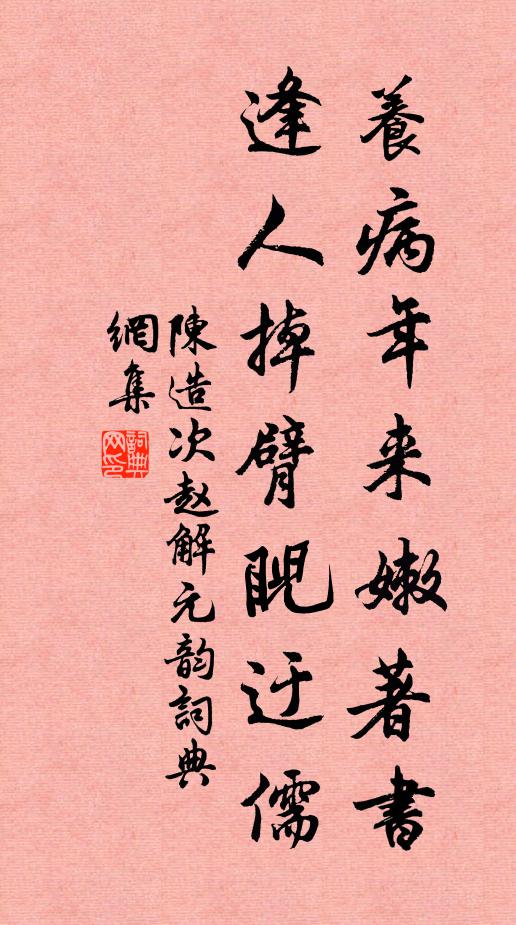 養病年来嫩著書
逢人掉臂睨迂儒
陳造次赵解元韵詞典
網集
詞典网印